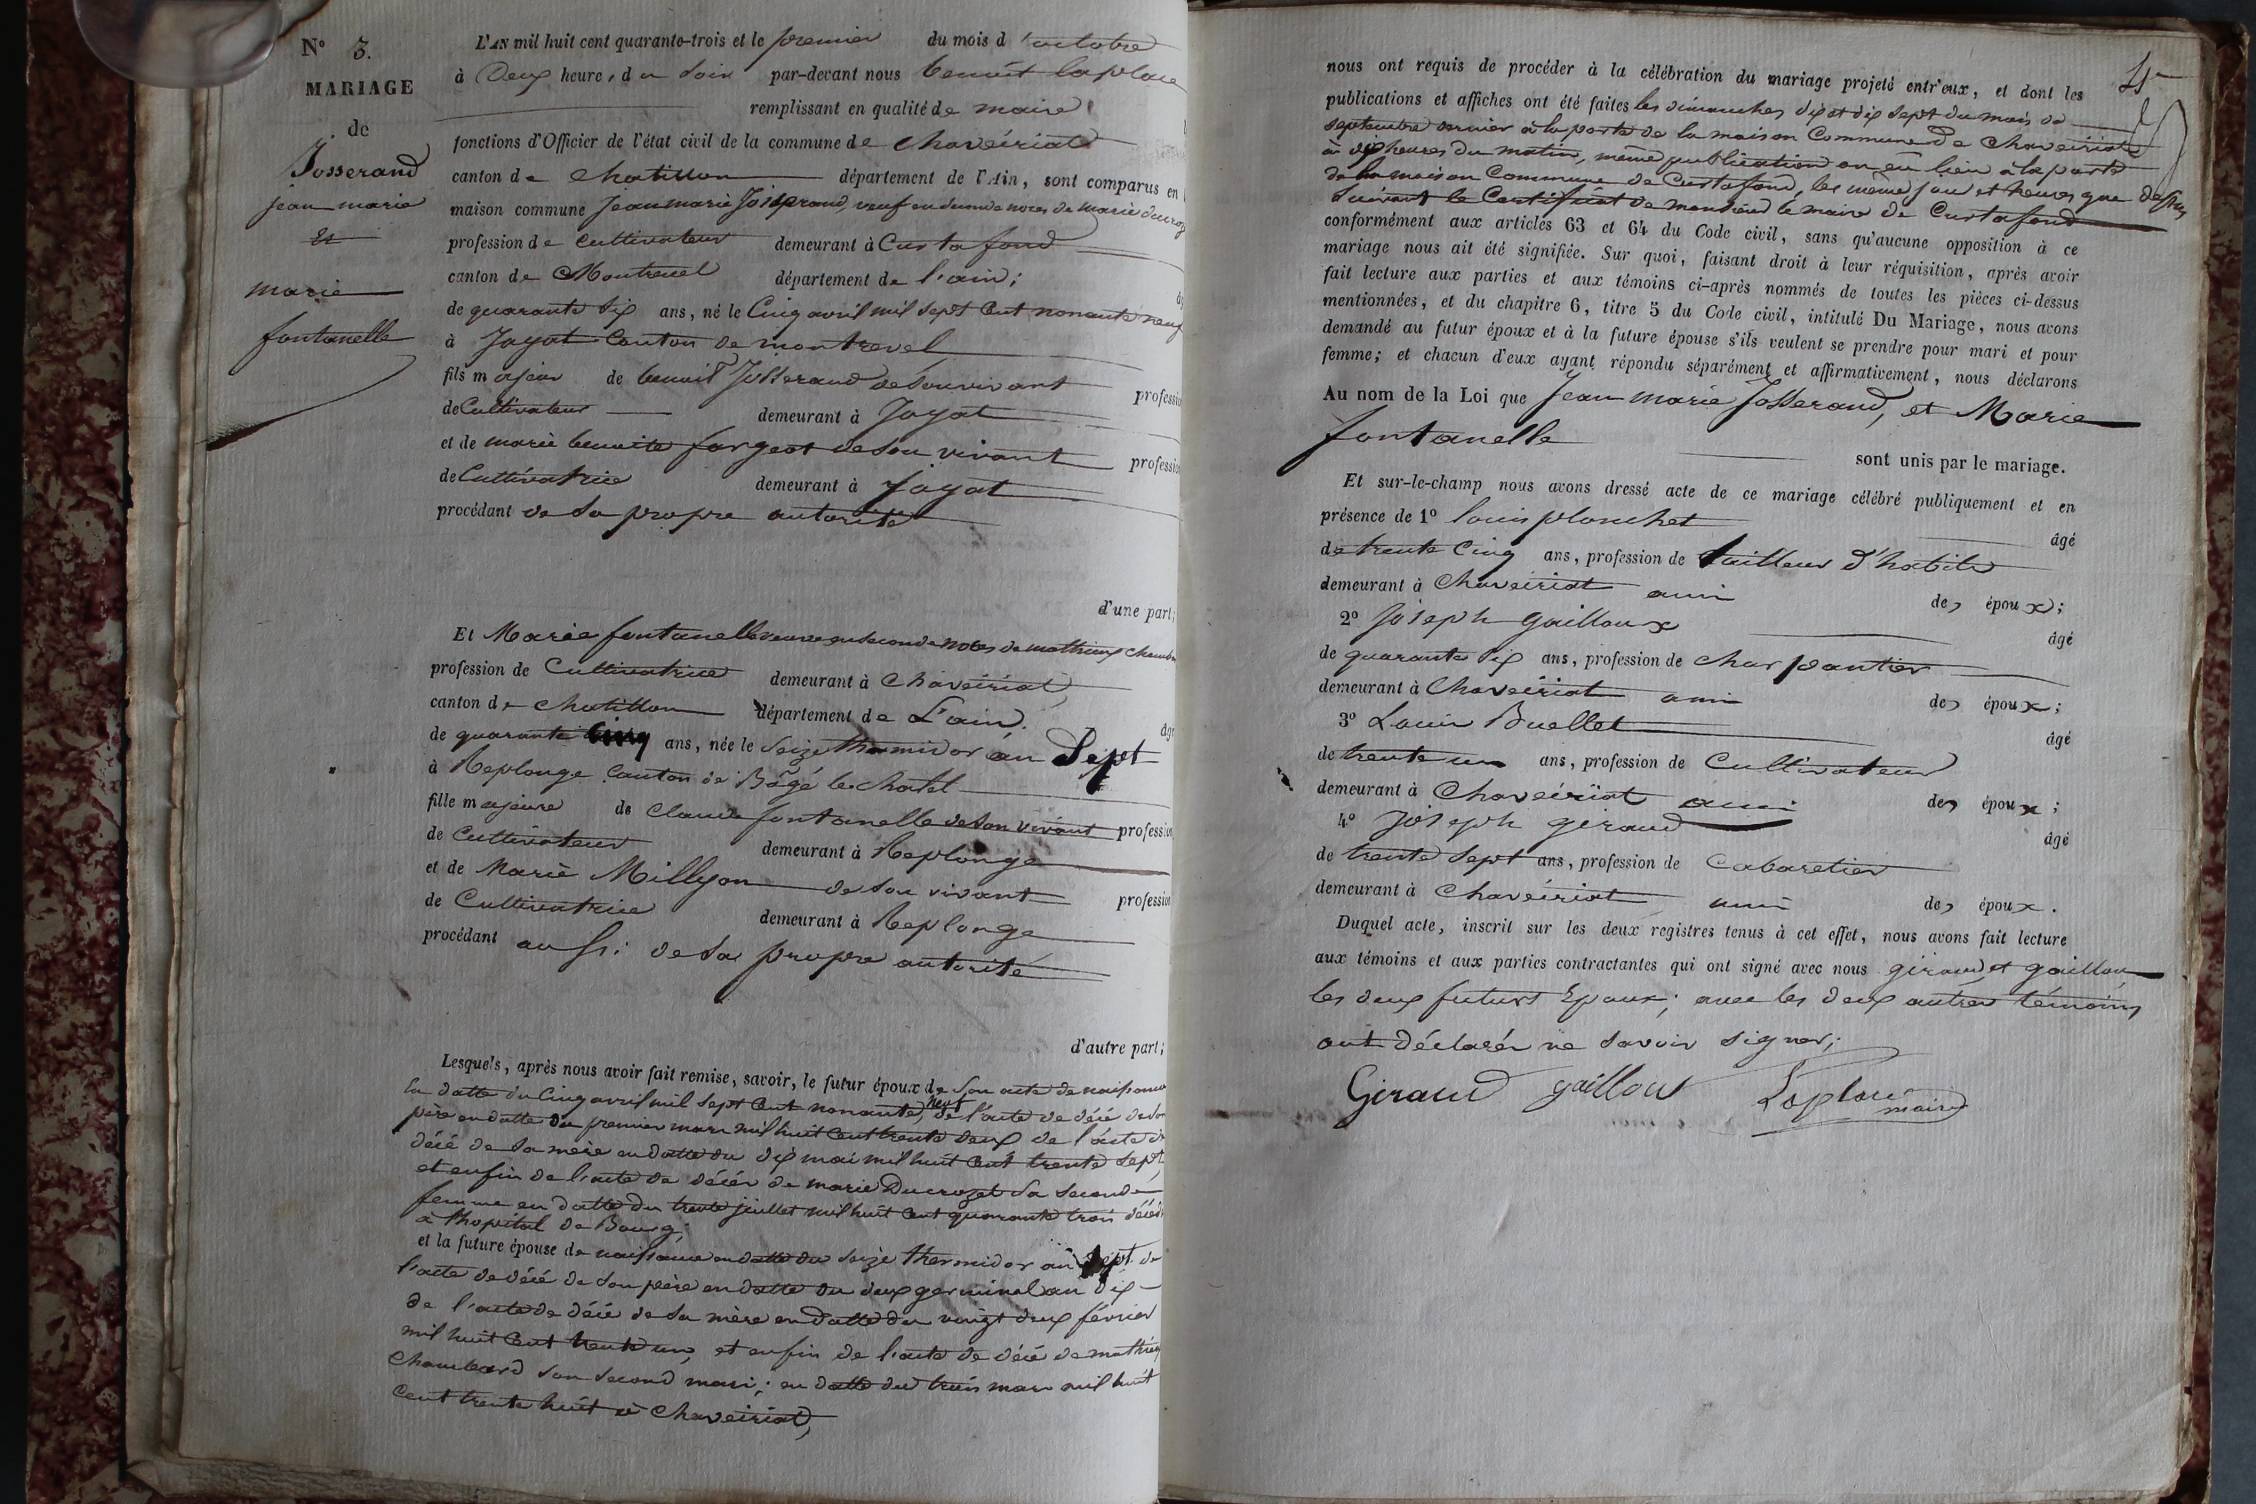 N° 3.
MARIAGE
de
Josserand
jean marie
et
marie
fontanelle
L'AN mil huit cent quarante-trois et le premier du mois d'octobre
à Deux heures du soir par-devant nous benoit laplace
remplissant en qualité de maire
fonctions d'Officier de l'état civil de la commune de chaveiriat
canton de chatillon département de l'Ain, sont comparus en
maison commune Jean marie Josserand, veuf en seconde noces de Marie ducroz
profession de cultivateur demeurant à Curtafond
canton de Montrevel département de l'ain;
de quarante six ans, né le Cinq avril mil sept Cent nonante neuf
à Jayat Canton de montrevel
fils majeur de benoit Josserand de son vivant profession
de Cultivateur demeurant à Jayat
et de marie benoite fargeot de son vivant profession
de Cultivatrice demeurant à Jayat
procédant de sa propre autorité
d'une part;
Et Marie fontanelle veuve en seconde noces de mathieux chamb
profession de Cultivatrice demeurant à chaveiriat
canton de chatillon département de L'ain.
de quarante cinq ans, née le seize thermidor an Sept
à Replonge Canton de Bâgé le chatel
fille majeure de Claude fontanelle de son vivant profession
de Cultivateur demeurant à Replonge
et de Marie Millyon de son vivant profession
de Cultivatrice demeurant à Replonge
procédant aussi de sa propre autorité
d'autre part;
Lesquels, après nous avoir fait remise, savoir, le futur époux de son acte de naissance
la datte du Cinq avril mil sept Cent nonante neuf, de l'acte de décé de son
père en datte du premier mars mil huit Cent trente deux de l'acte de
décé de sa mère en datte du dix mai mil huit Cent trente sept
et enfin de l'acte de décér de marie Ducrozet sa seconde
femme en datte du trente juillet mil huit Cent quarante trois décédé
à lhopital de Bourg;
et la future épouse de naissance en datte du seize thermidor an sept de
l'acte de décé de son père en datte du deux germinal an dix
de l'acte de décé de sa mère en datte du vingt deux février
mil huit Cent trente un, et enfin de l'acte de décé de mathieu
Chambard son second mari; en datte du trois mars mil huit
Cent trente huit à Chaveiriat,
4
nous ont requis de procéder à la célébration du mariage projeté entr'eux, et dont les
publications et affiches ont été faites les dimanches dix et dix sept du mois de
septembre dernier à la porte de la maison Commune de Chaveiriat
à dix heures du matin, même publication on eu lieu à la porte
de la maison Commune de Curtafond, les même jour et heures que dessus
suivant le Certificat de monsieur le maire de Curtafond
conformément aux articles 63 et 64 du Code civil, sans qu'aucune opposition à ce
mariage nous ait été signifiée. Sur quoi, faisant droit à leur réquisition, après avoir
fait lecture aux parties et aux témoins ci-après nommés de toutes les pièces ci-dessus
mentionnées, et du chapitre 6, titre 5 du Code civil, intitulé Du Mariage, nous avons
demandé au futur époux et à la future épouse s'ils veulent se prendre pour mari et pour
femme; et chacun d'eux ayant répondu séparément et affirmativement, nous déclarons
Au nom de la Loi que Jean marie Josserand, et Marie
fontanelle
sont unis par le mariage.
Et sur-le-champ nous avons dressé acte de ce mariage célébré publiquement et en
présence de 1° louis planchet âgé
de trente Cinq ans, profession de tailleur d'habits
demeurant à Chaveiriat ami des époux;
2° Joseph gailloux âgé
de quarante six ans, profession de charpantier
demeurant à Chaveiriat ami des époux;
3° Louis Buellet âgé
de trente un ans, profession de Cultivateur
demeurant à Chaveiriat ami des époux;
4° Joseph geraud âgé
de trente sept ans, profession de Cabaretier
demeurant à Chaveiriat ami des époux.
Duquel acte, inscrit sur les deux registres tenus à cet effet, nous avons fait lecture
aux témoins et aux parties contractantes qui ont signé avec nous géraud, et gaillou
les deux futurs Epoux; avec les deux autres témoins
ont déclarér ne savoir signer;
Giraud gailloux Laplace
maire